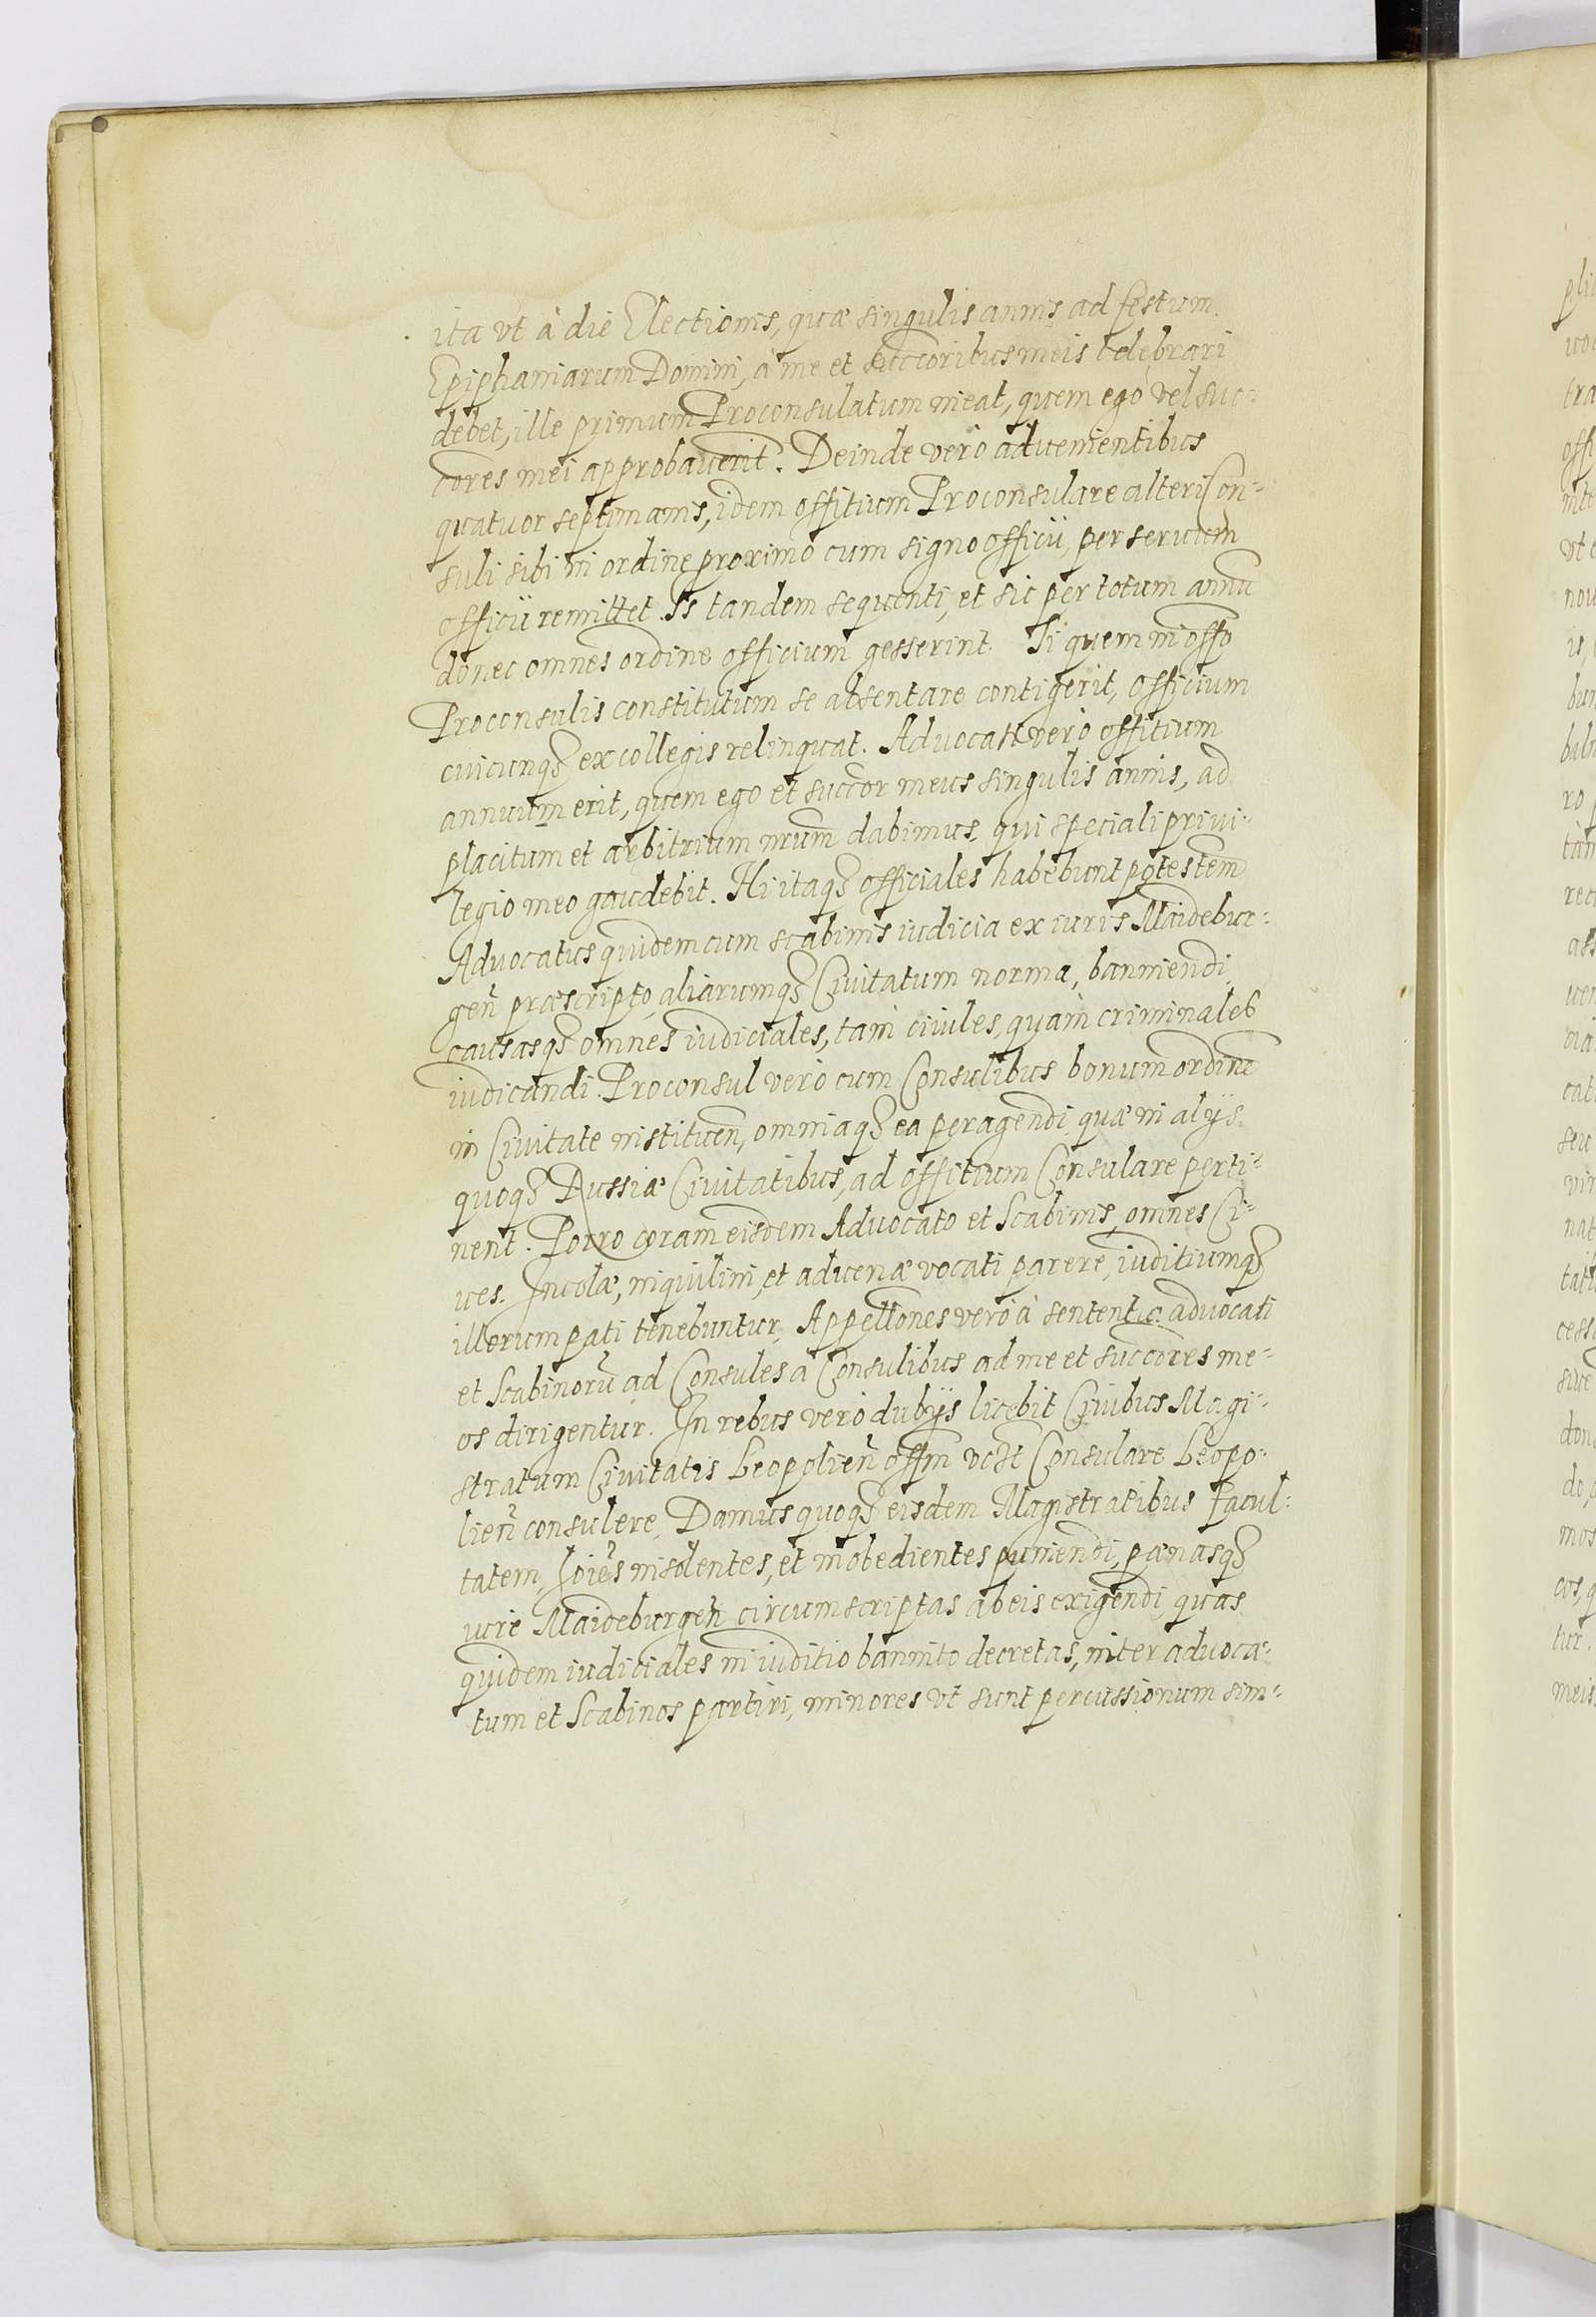 ita vt à die Electionis, quæ singulis annis ad festum
Epiphaniarum Domini, à me et succoribus meis celebrari
debet, ille primum Proconsulatum ineat, quem ego vel suc-
cores mei approbauerit. Deinde verò aduenientibus
quatuor septimanis, idem offitium Proconsulare alteri Con-
suli sibi in ordine proximo cum signo officii, per seruum
officii remittet. Is tandem sequenti, et sic per totum annū
donec omnes ordine officium gesserint. Si quem in offo
Proconsulis constitutum se absentare contigerit, officium
cuicunqȝ ex collegis relinquat. Aduocati verò offitium
annuum erit, quem ego et succor meus singulis annis, ad
placitum et arbitrium nrum dabimus, qui speciali priui-
legio meo gaudebit. Hi itaqȝ officiales habebunt potestem
Aduocatus quidem cum scabinis iudicia ex iuris Maidebur-
geñ præscripto, aliarumqȝ Ciuitatum norma, banniendi,
causasqȝ omnes iudiciales, tam ciuiles, quam criminales
iudicandi. Proconsul verò cum Consulibus bonum ordinē
in Ciuitate instituen, omniaqȝ ea peragendi quæ in alys
quoqȝ Russiæ Ciuitatibus, ad offitium Consulare perti-
nent. Porro coram eisdem Aduocato et Scabinis, omnes Ci-
ues. Incolæ, inquilini, et aduenæ vocati parere, iuditiumqȝ
illorum pati tenebuntur, Appellones verò à sententia aduocati
et Scabinorū ad Consules à Consulibus ad me et succores me-
os dirigentur. In rebus verò dubijs licebit Ciuibus Magi-
stratum Ciuitatis Leopolieñ offm Consulare Leopo-
lieñ consulere, Damus quoqȝ eisdem Magistratibus facul-
tatem, insolentes, et inobedientes puniendi, pænasqȝ
iure Maideburgeñ circumscriptas ab eis exigendi, quas
quidem iudiciales in iuditio bannito decretas, inter aduoca-
tum et Scabinos partiri, minores vt sunt percussionum sim-